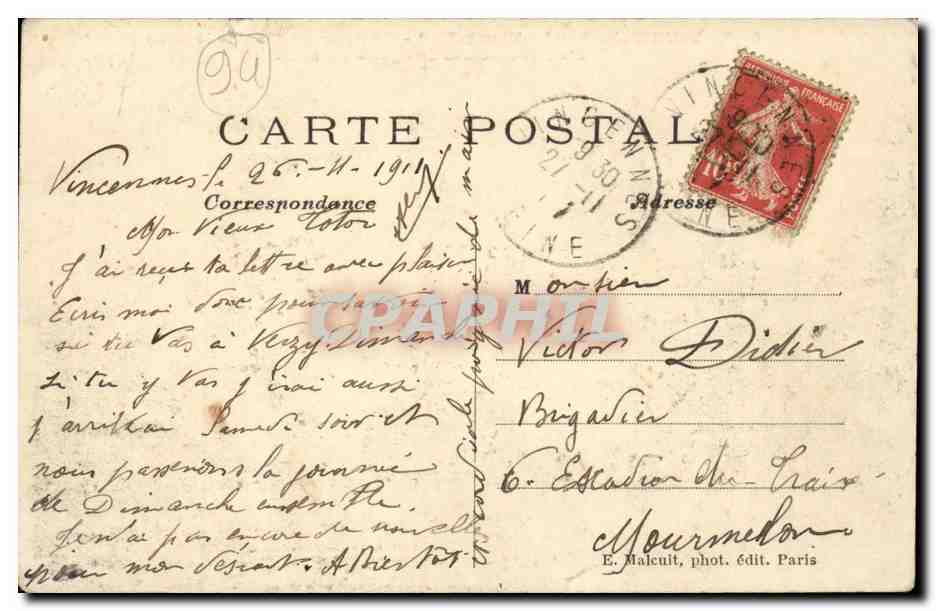 94
CARTE POSTALE
Vincennes le 26-11-1911
Correspondance
Mon Vieux Totor
J'ai reçu ta lettre avec plaisir
Ecris moi donc pour savoir
si tu vas à Verzy Dimanche
si tu y vas j'irai aussi
j'arriverai Samedi soir et
nous passerons la journée
de Dimanche ensemble.
Je n'ai pas encore de nouvelle
pour mon départ. A Bientôt
cordiale poignée de main
VINCENNES
9 30
27 -11
SEINE
VINCENNES
9 30
27 -11
SEINE
REPUBLIQUE FRANÇAISE
10
POSTES
Adresse
Monsieur
Victor Didier
Brigadier
6. Escadron du Train
Mourmelon
E. Malcuit, phot. édit. Paris
CPAPHIL